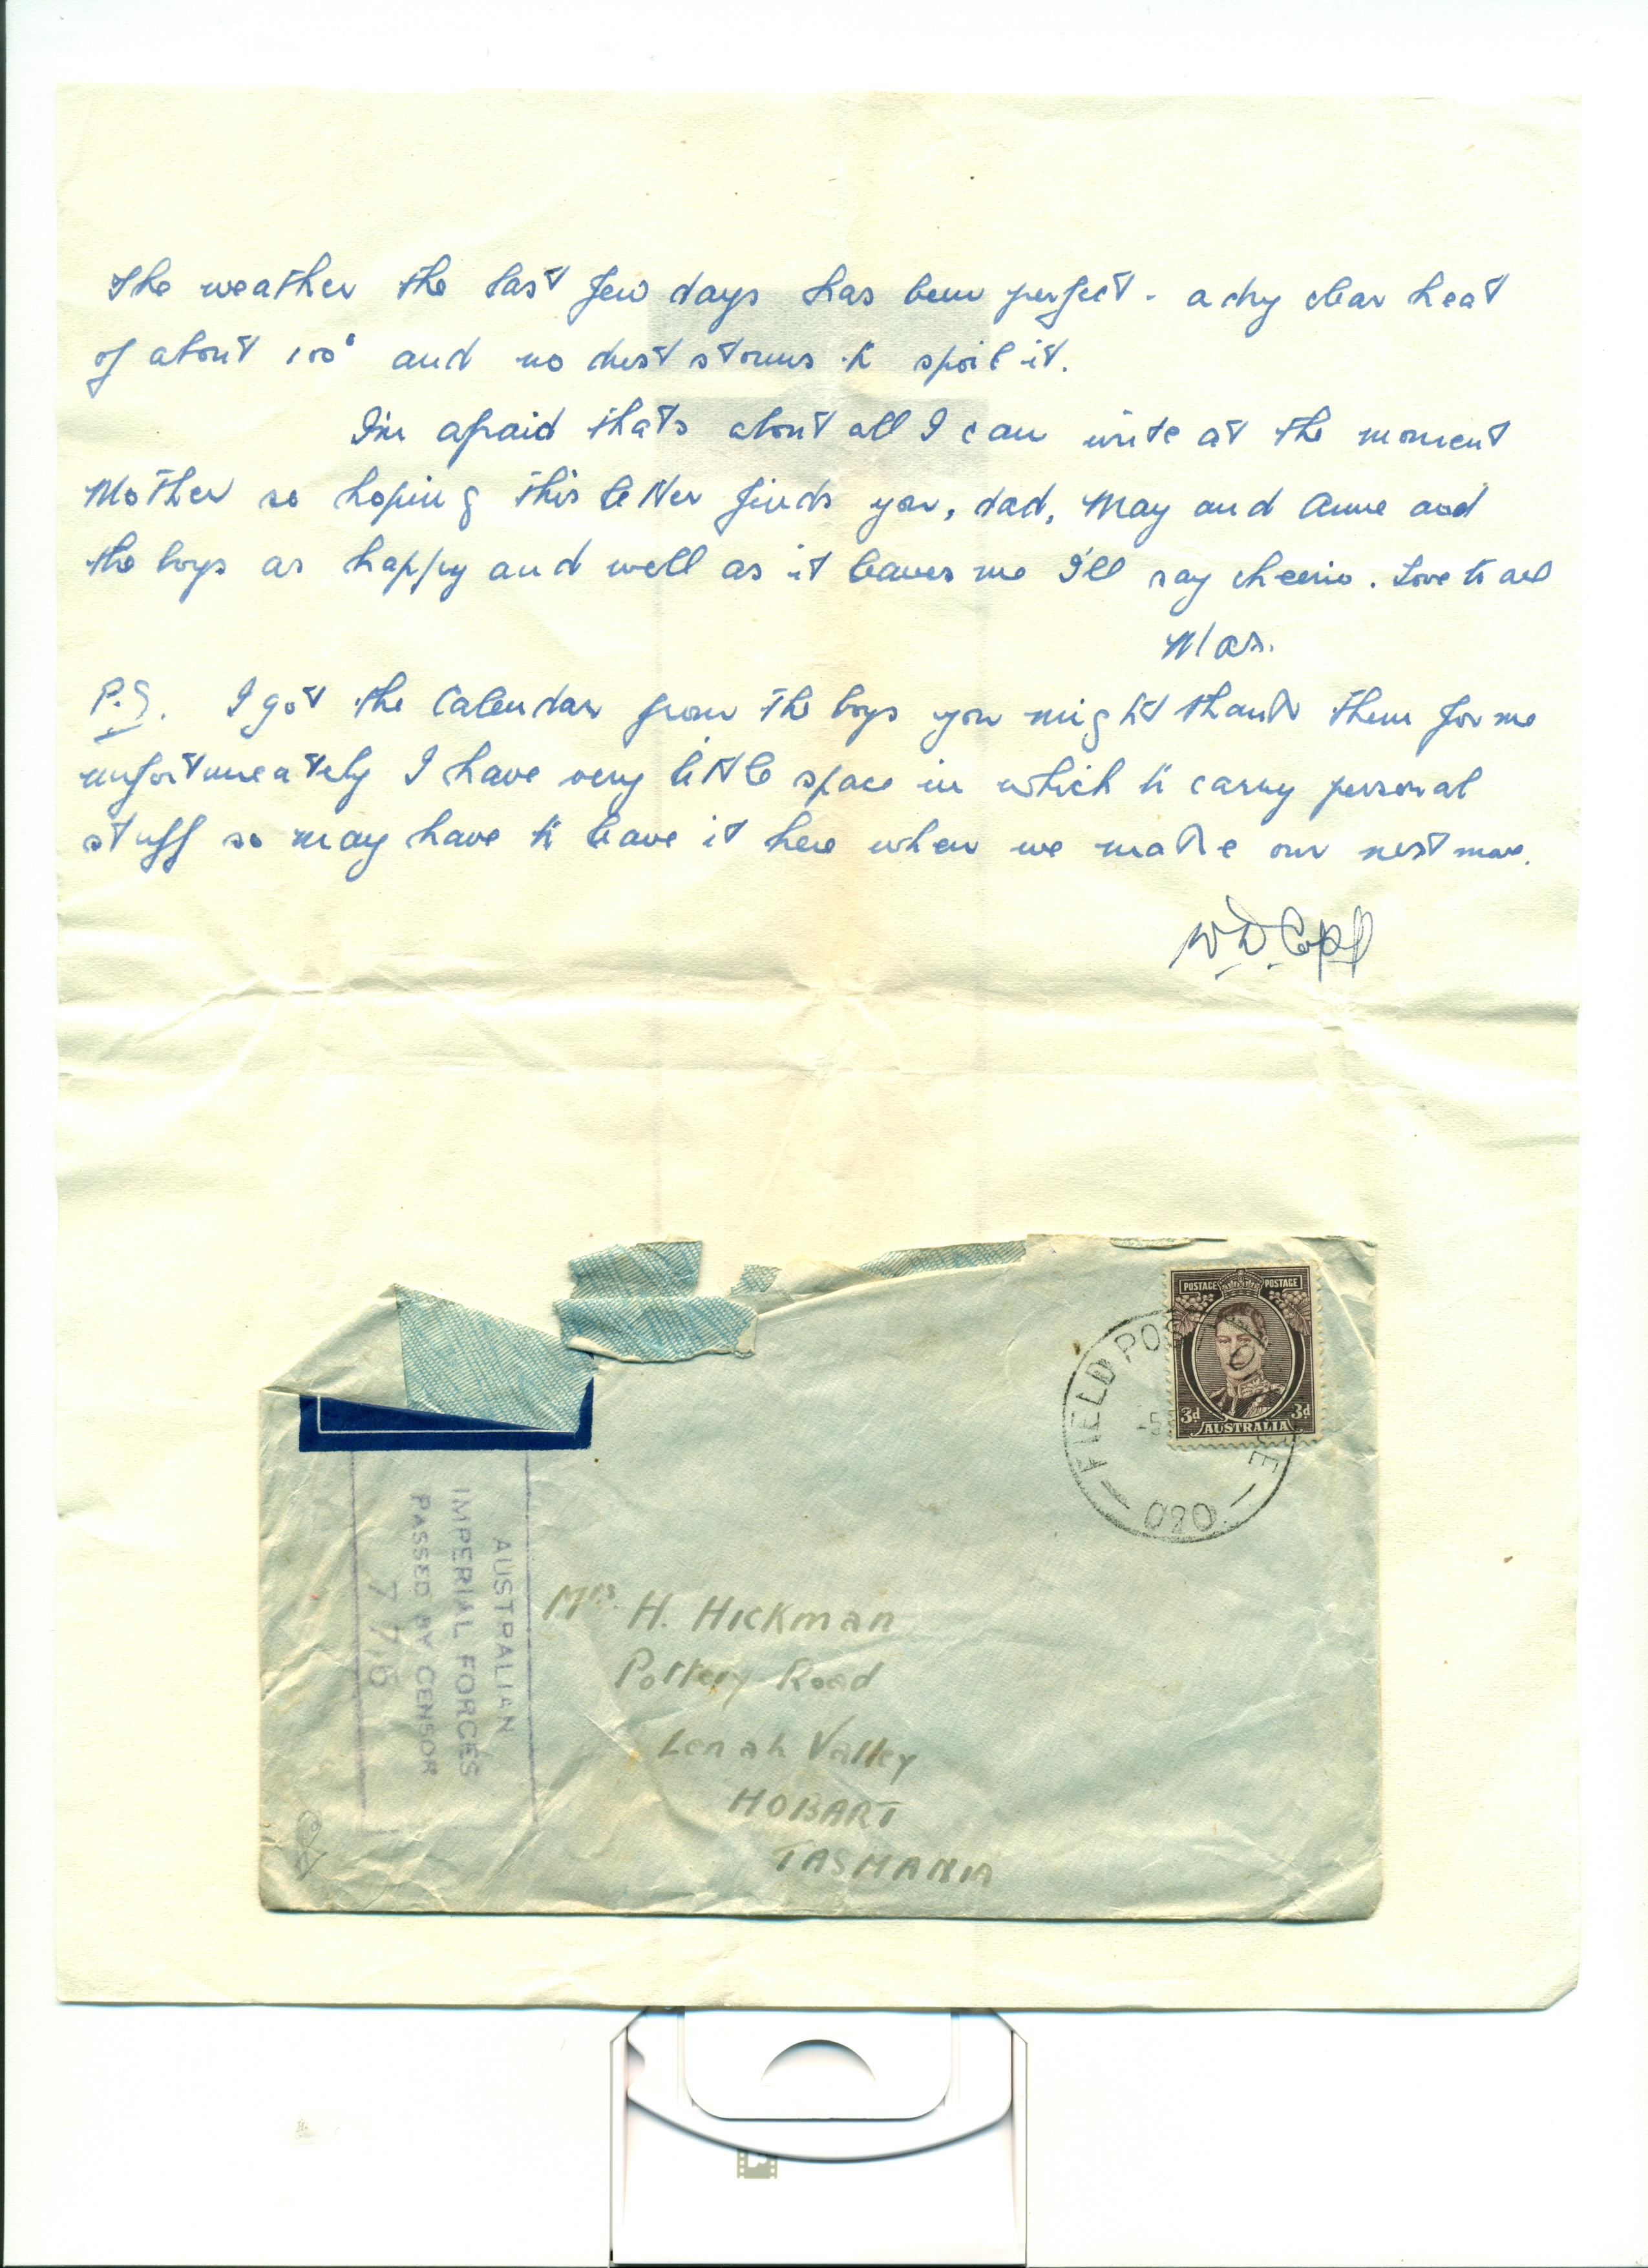 the weather the last few days has been perfect - a dry clear heat
of about 100° and no dust storms to spoil it.
I'm afraid thats about all I can write at the moment
Mother so hoping this letter finds you, dad, May and Anne and
the boys as happy and well as it leaves me I'll say cheerio. Love to all
Mas.
P.S. I got the Calendar from the boys you might thank them for me
unfortuneately I have very little space in which to carry personal
stuff so may have to leave it here when we make our next move.
POSTAGE POSTAGE
3d 3d
AUSTRALIA
FIELD POST
-5
020
AUSTRALIAN
IMPERIAL FORCES
PASSED BY CENSOR
776
Mrs. H. Hickman
Pottery Road
Lenah Valley
HOBART
TASMANIA